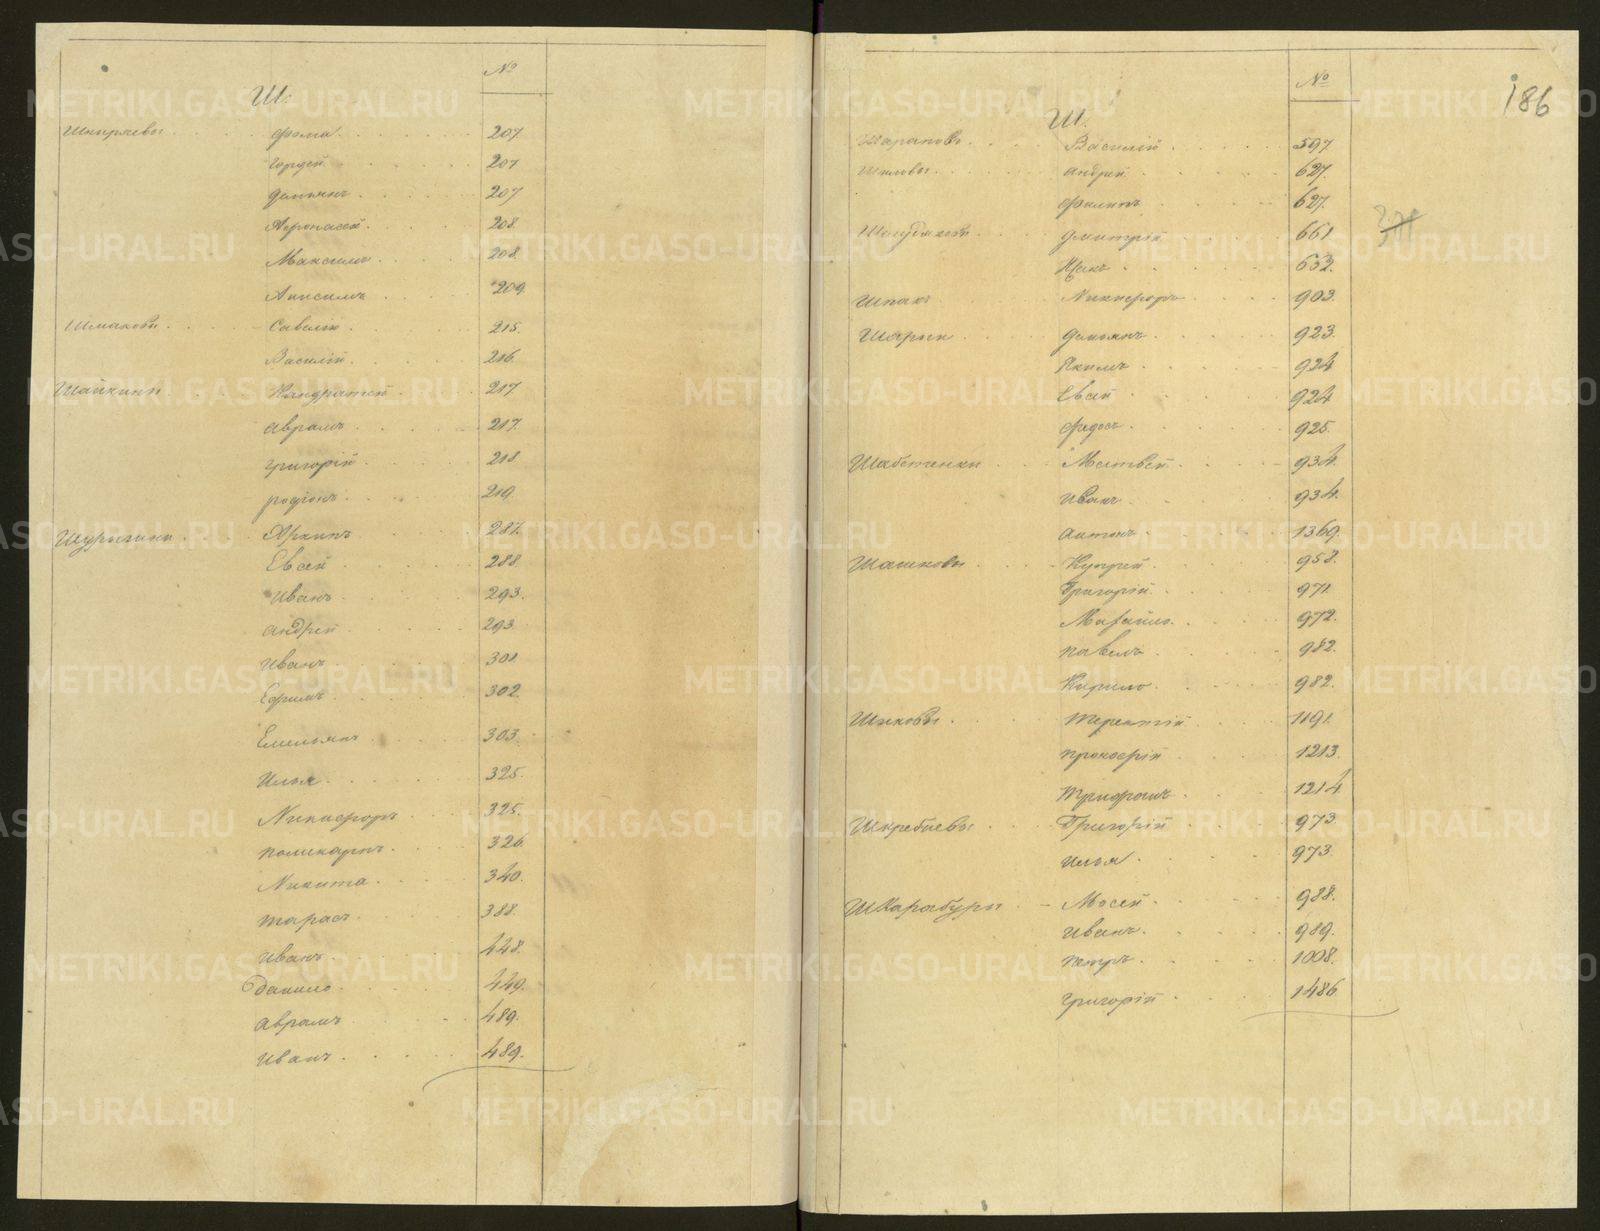 №
Ш.
Шкиряевы Фома 207.
Гордей 207
Демьянъ 207
Афонасей 208.
Максимъ 208.
Анисимъ 209.
Шмаковы Савелій 215.
Василій 216.
Шайкины Кандратей 217
Аврамъ 217.
Григорій 218.
Родіонъ 219.
Шурыгины Архипъ 287.
Евсей 288.
Иванъ 293.
Андрей 293.
Иванъ 301.
Ефимъ 302.
Емельянъ 303.
Илья 325.
Никифоръ 325.
Поликарпъ 326.
Никита 340.
Тарасъ 388.
Иванъ 448.
Данило 449.
Аврамъ 489.
Иванъ 489.
№
186
Ш.
Шараповъ Василій 597.
Шиловы Андрей 627.
Филипъ 627.
Дмитрій 661.
Исакъ 632.
Шпакъ Никифоръ 903.
Шарыи Демьянъ 923.
Якимъ 924
Евсей 924
Федосъ 925.
Матвей 934.
Иванъ 934.
Антонъ 1369.
Шашковы Купрей 958.
Григорій 971
Михайло 972.
Павелъ 982.
Кирило 982.
Шиковы Терентій 1191
Прокофій 1213.
Трифонъ 1214
Шкребневы Григорій 973.
Илья 973.
Шкарабуры Мосей 988.
Иванъ 989.
Петръ 1008.
Григорій 1486.
METRIKI.GASO-URAL.RU